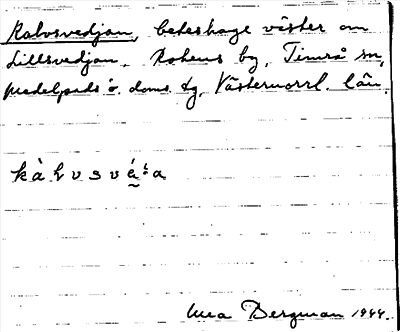 Kalvsvedjan, beteshage väster om
Lillsvedjan, Rokens by, Timrå sn,
Medelpads ö. doms. tg, Västernorrl. län.
kàlvsvé
Bergman 1944.